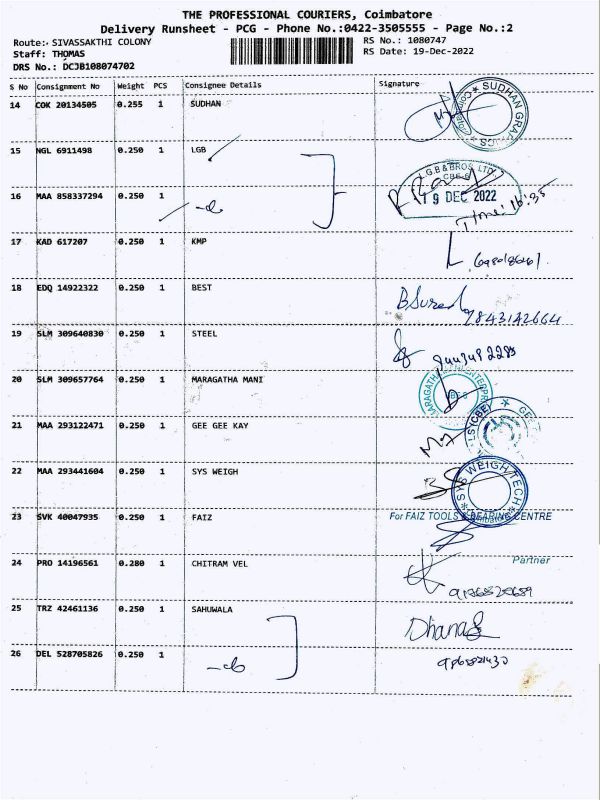 THE PROFESSIONAL COURIERS, Coimbatore
Delivery Runsheet - PCG - Phone No.:0422-3505555 - Page No.:2
Route:- SIVASSAKTHI COLONY RS No.: 1080747
Staff: THOMAS RS Date: 19-Dec-2022
DRS No.: DCJB108074702
S No Consignment No Weight PCS Consignee Details Signature
14 COK 20134505 0.255 1 SUDHAN
SUDHAN GRAPHICS
15 NGL 6911498 0.250 1 LGB
L.G.B & BROS. LTD.
CBE-6
19 DEC 2022
16 MAA 858337294 0.250 1 -do
Time: 16:35
17 KAD 617207 0.250 1 KMP
18 EDQ 14922322 0.250 1 BEST
9843142664
19 SLM 309640830 0.250 1 STEEL
20 SLM 309657764 0.250 1 MARAGATHA MANI
21 MAA 293122471 0.250 1 GEE GEE KAY
22 MAA 293441604 0.250 1 SYS WEIGH
SYS WEIGH TECH
Coimbatore
23 SVK 40047935 0.250 1 FAIZ
For FAIZ TOOLS & BEARING CENTRE
24 PRO 14196561 0.280 1 CHITRAM VEL
Partner
25 TRZ 42461136 0.250 1 SAHUWALA
26 DEL 528705826 0.250 1 -do